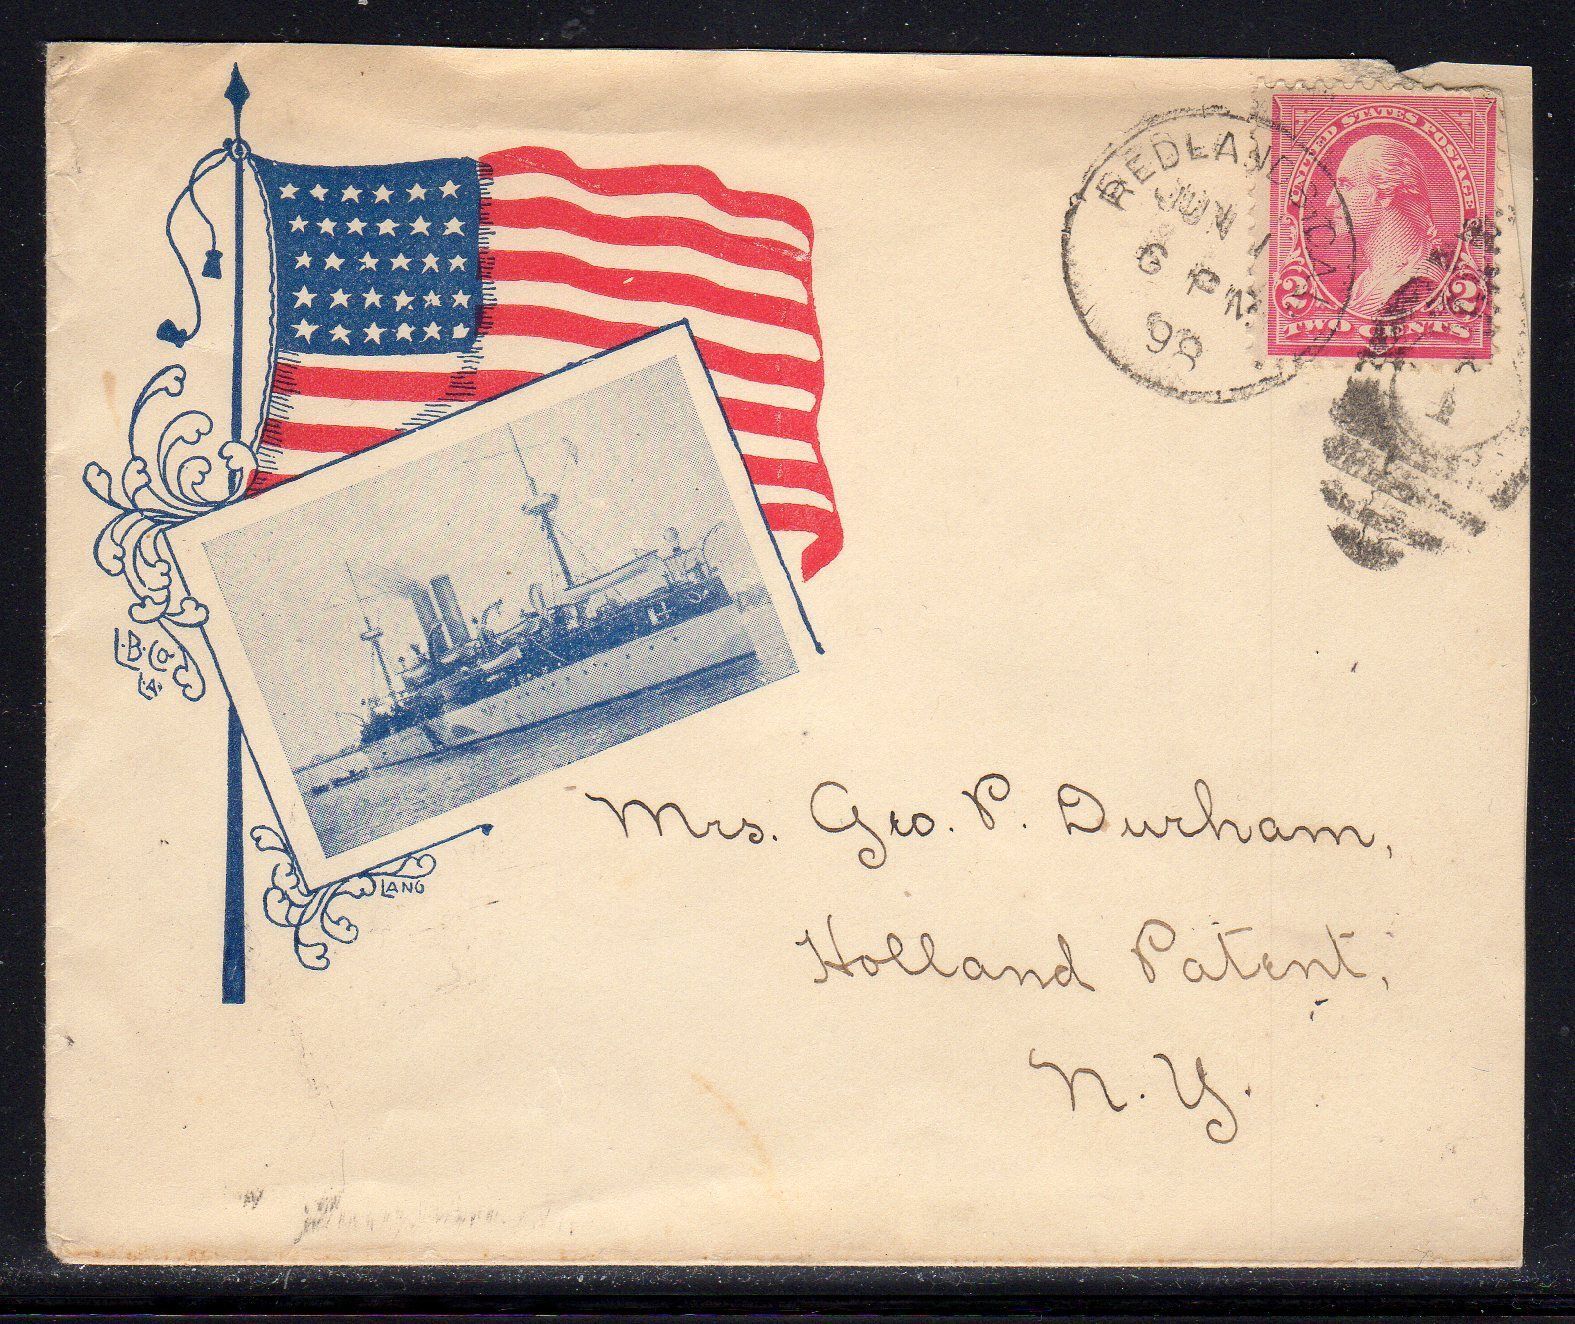 REDLANDS, CAL
JUN 1
6 PM
98
UNITED STATES POSTAGE
2 2
TWO CENTS
1
L.B.Co.
L.A.
LANG
Mrs. Geo. P. Durham,
Holland Patent,
N. Y.